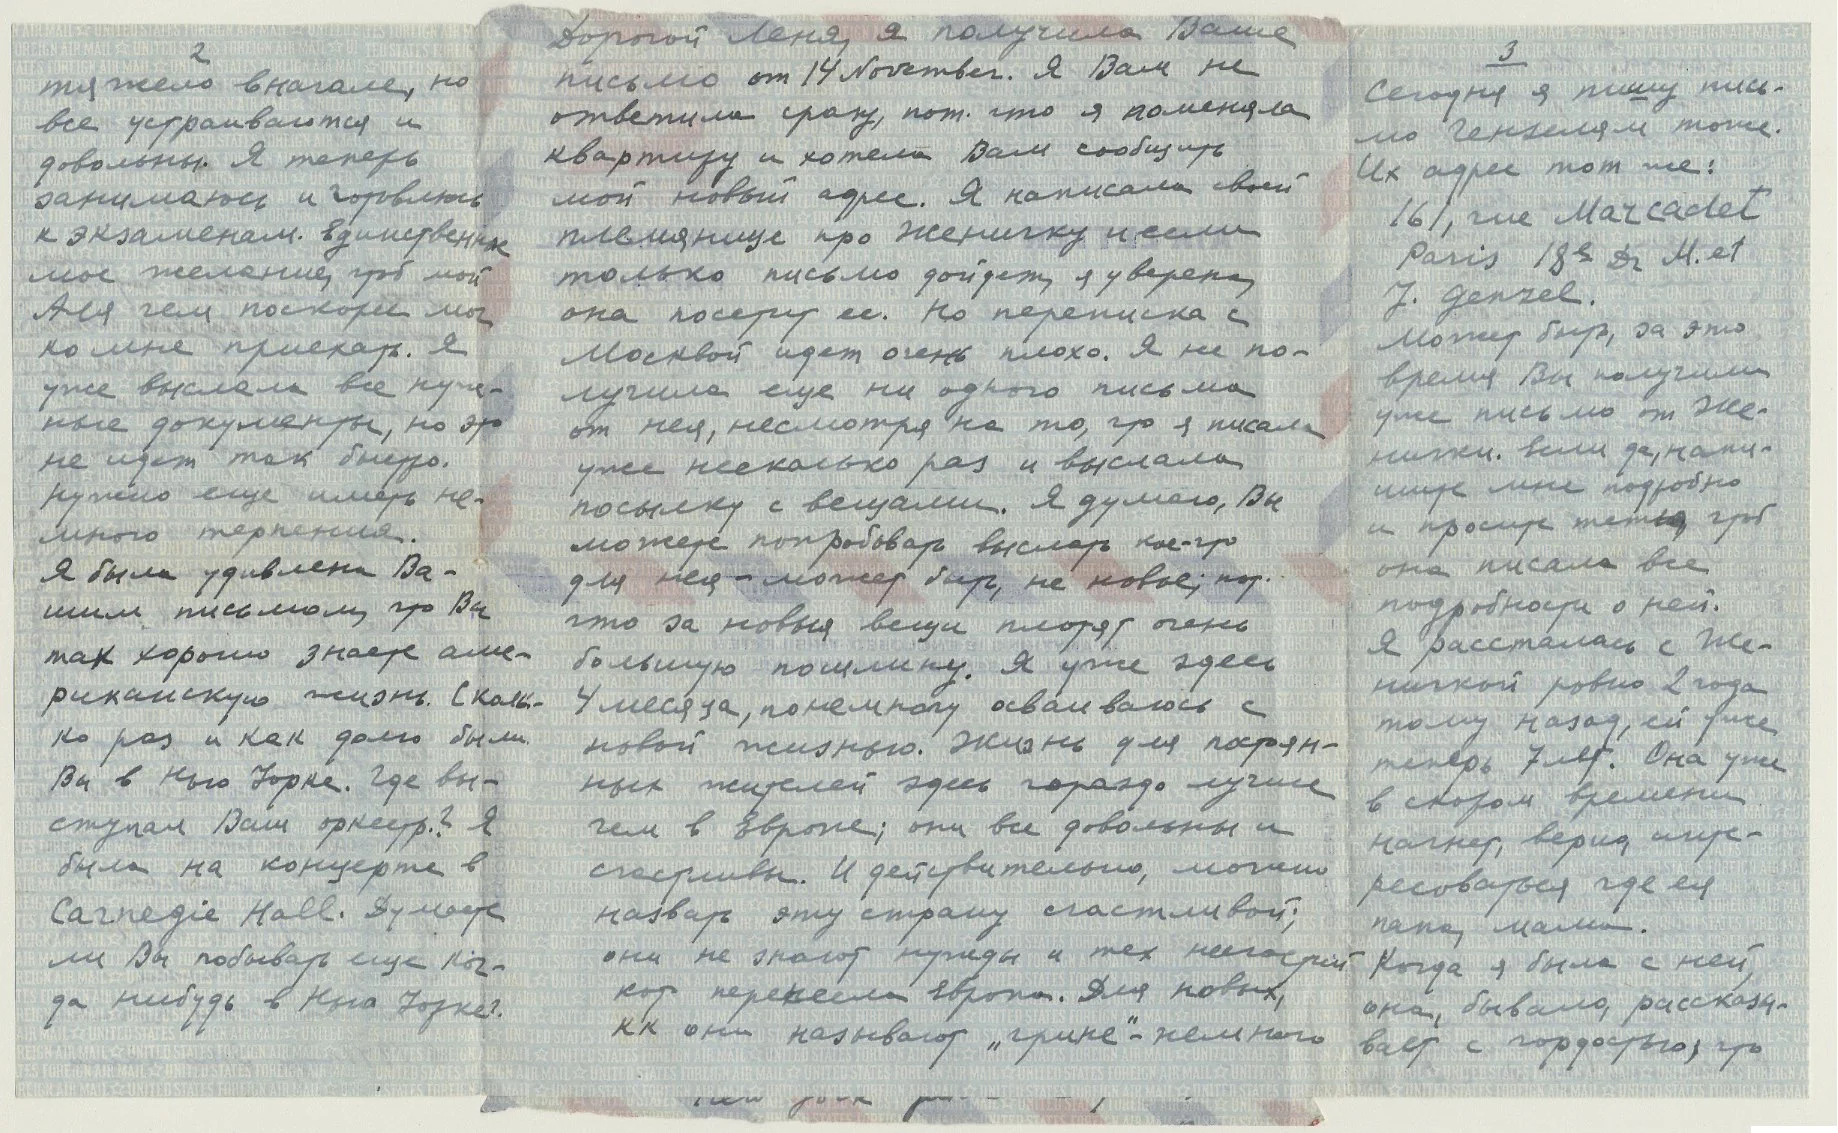 Дорогой Леня, я получила Ваше
письмо от 14 November. Я Вам не
ответила сразу, пот. что я поменяла
квартиру и хотела Вам сообщить
мой новый адрес. Я написала своей
племянице про Женичку и если
только письмо дойдет, я уверена,
она посетит ее. Но переписка с
Москвой идет очень плохо. Я не по-
лучила еще ни одного письма
от нея, несмотря на то, что я писала
уже несколько раз и выслала
посылку с вещами. Я думаю, Вы
можете попробовать выслать кое-что
для нея – может быть, не новое, пот.
что за новыя вещи платят очень
большую пошлину. Я уже здесь
4 месяца, понемногу осваиваюсь с
новой жизнью. Жизнь для постоян-
ных жителей здесь гораздо лучше
чем в Европе; они все довольны и
счастливы. И действительно, можно
назвать эту страну счастливой;
они не знают нужды и тех несчастий
кот. перенесла Европа. Для новых,
кк они называют „грине" – немного
2
тяжело вначале, но
все устраиваются и
довольны. Я теперь
занимаюсь и готовлюсь
к экзаменам. Единственное
мое желание, чтоб мой
Аля чем поскорее мог
ко мне приехать. Я
уже выслала все нуж-
ные документы, но это
не идет так быстро.
Нужно еще иметь не-
много терпения.
Я была удивлена Ва-
шим письмом, что Вы
так хорошо знаете аме-
риканскую жизнь. Сколь-
ко раз и как долго были
Вы в Нью Йорке. Где вы-
ступал Ваш оркестр? Я
была на концерте в
Carnegie Hall. Думаете
ли Вы побывать еще ког-
да нибудь в Нью Йорке?
3
Сегодня я пишу пись-
мо Гензелям тоже.
Их адрес тот же:
161, rue Marcadet
Paris 18e Dr M. et
J. Genzel.
Может быть, за это
время Вы получили
уже письмо от Же-
нички. Если да, напи-
шите мне подробно
и просите тетю, чтоб
она писала все
подробности о ней.
Я рассталась с Же-
ничкой ровно 2 года
тому назад, ей уже
теперь 7 лет. Она уже
в скором времени
начнет, верно, инте-
ресоваться где ея
папа, мама.
Когда я была с ней,
она, бывало, рассказы-
вает с гордостью, что